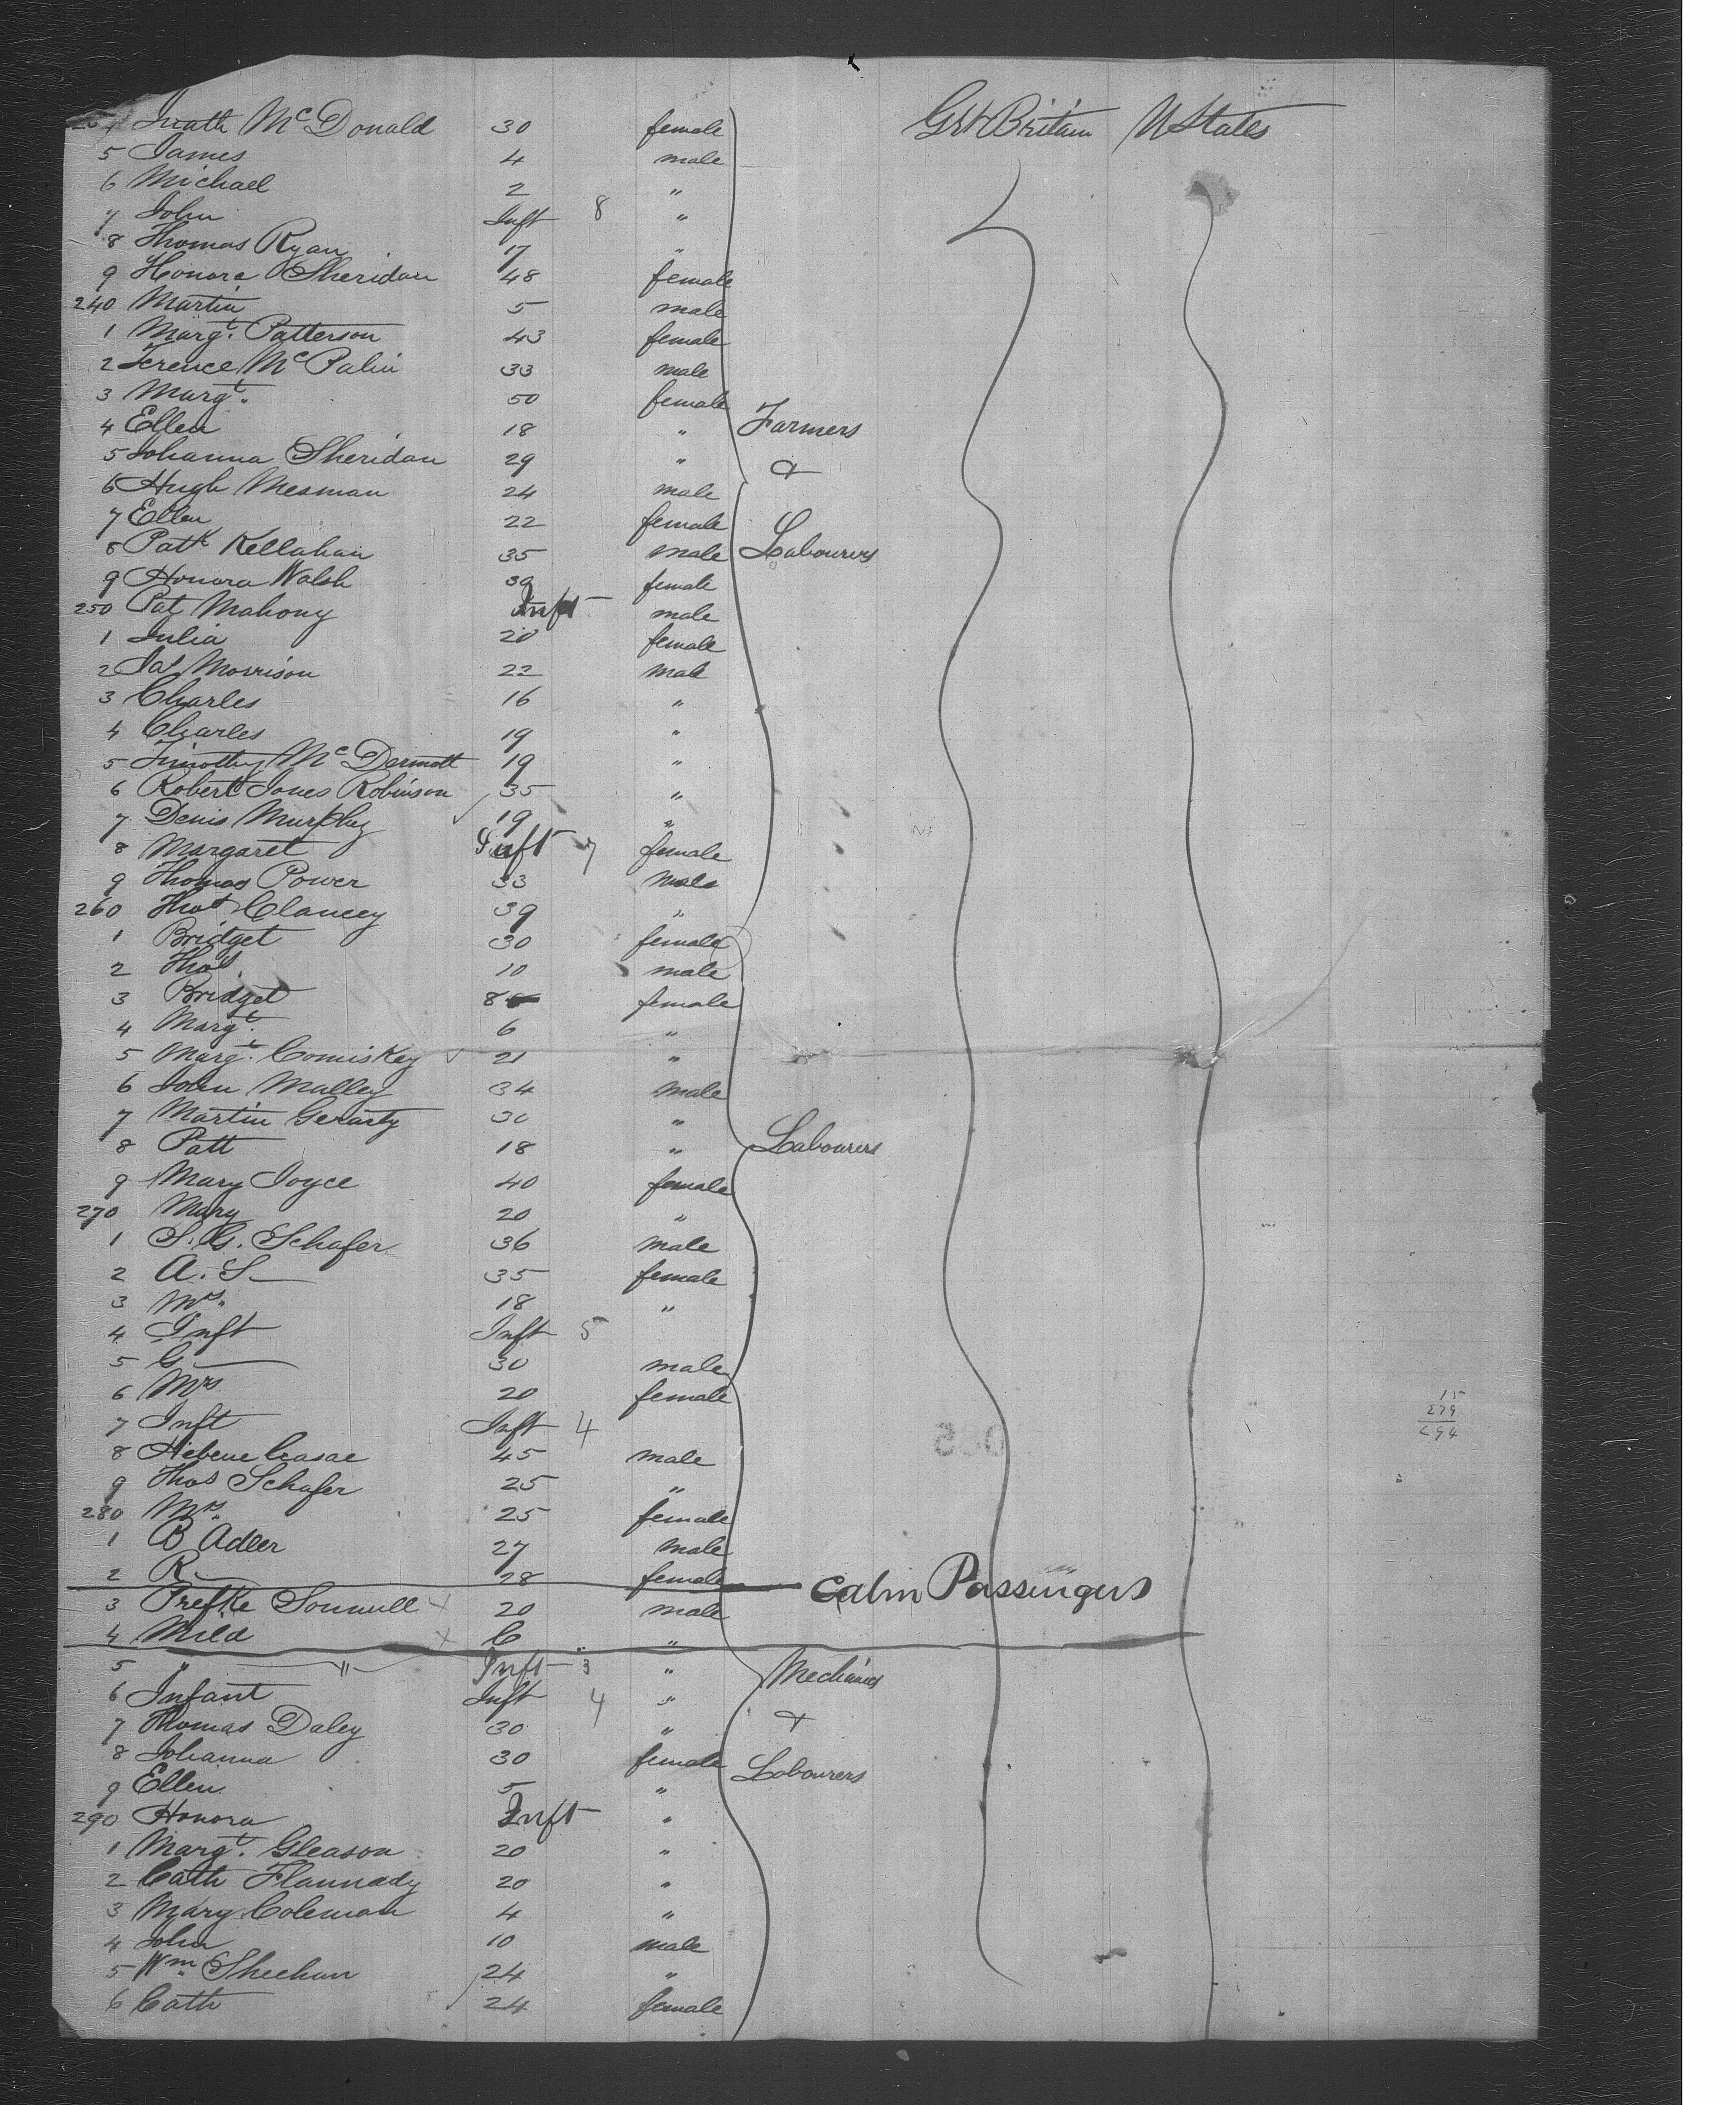 Mc Donald 30 female Grt Britain U States
5 James 4 male
6 Michael 2 "
7 John Inft 8 "
8 Thomas Ryan 17 "
9 Honora Sheridan 48 female
240 Martin 5 male
1 Margt. Patterson 43 female
2 Terence Mc Palin 33 male
3 Margt. 50 female
4 Ellen 18 " Farmers
5 Johanna Sheridan 29 " &
6 Hugh Mesman 24 male
7 Ellen 22 female
8 Patk Kellahan 35 male Labourers
9 Honora Walsh 39 female
250 Pat Mahony Inft male
1 Julia 20 female
2 Jas Morrison 22 male
3 Charles 16 "
4 Charles 19 "
5 Timothy Mc Dermott 19 "
6 Robert Jones Robinson 35 "
7 Denis Murphy 19 "
8 Margaret Inft 7 female
9 Thomas Power 33 male
260 Thos Clancey 39 "
1 Bridget 30 female
2 Thos. 10 male
3 Bridget 8 female
4 Margt. 6 "
5 Margt. Comiskey 21 "
6 John Malley 34 male
7 Martin Gerarty 30 "
8 Patt 18 " Labourers
9 Mary Joyce 40 female
270 Mary 20 "
1 S. G. Schafer 36 male
2 A. S— 35 female
3 Mrs. 18 "
4 Inft Inft 5
5 G— 30 male
6 Mrs 20 female
7 Inft Inft 4
8 45 male
9 Thos Schafer 25 "
280 Mrs. 25 female
1 B Adler 27 male
2 R— 28 female Cabin Passengers
3 20 male
4 "
5 " — " — Inft 3 " Mechanics
6 Infant Inft 4 "
7 Thomas Daley 30 " &
8 Johanna 30 female Labourers
9 Ellen 5 "
290 Honora Inft "
1 Margt. Gleason 20 "
2 Cath Flannady 20 "
3 Mary Coleman 4 "
4 John 10 male
5 Wm Sheehan 24 "
6 Cath 24 female
15
279
294